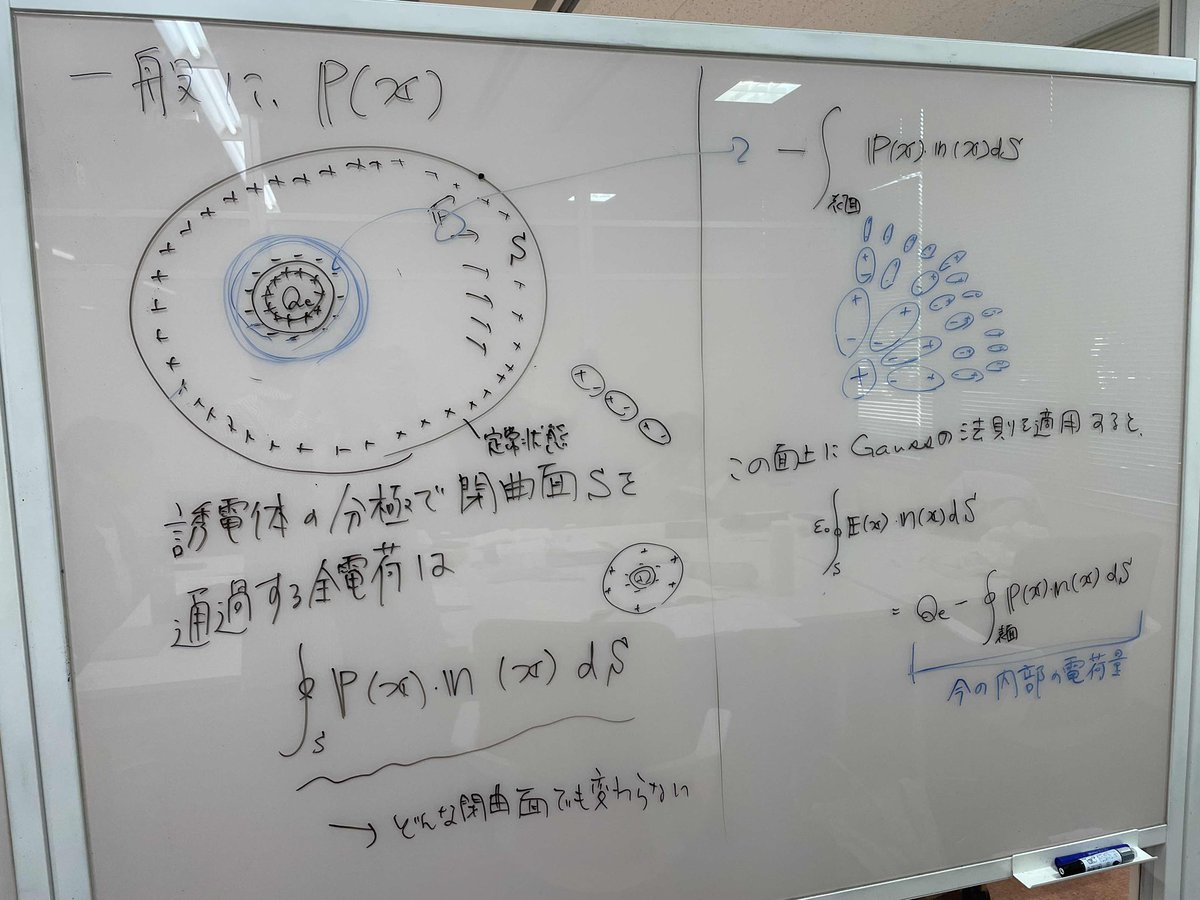 一般に、P(x)
Qe
S
定常状態
誘電体の分極で閉曲面Sを
通過する全電荷は
∮_S P(x)・n(x) dS
→ どんな閉曲面でも変わらない
- ∫_表面 P(x)・n(x)dS
この面上にGaussの法則を適用すると、
ε₀∮_S E(x)・n(x)dS
= Qe - ∮_表面 P(x)・n(x) dS
今の内部の電荷量